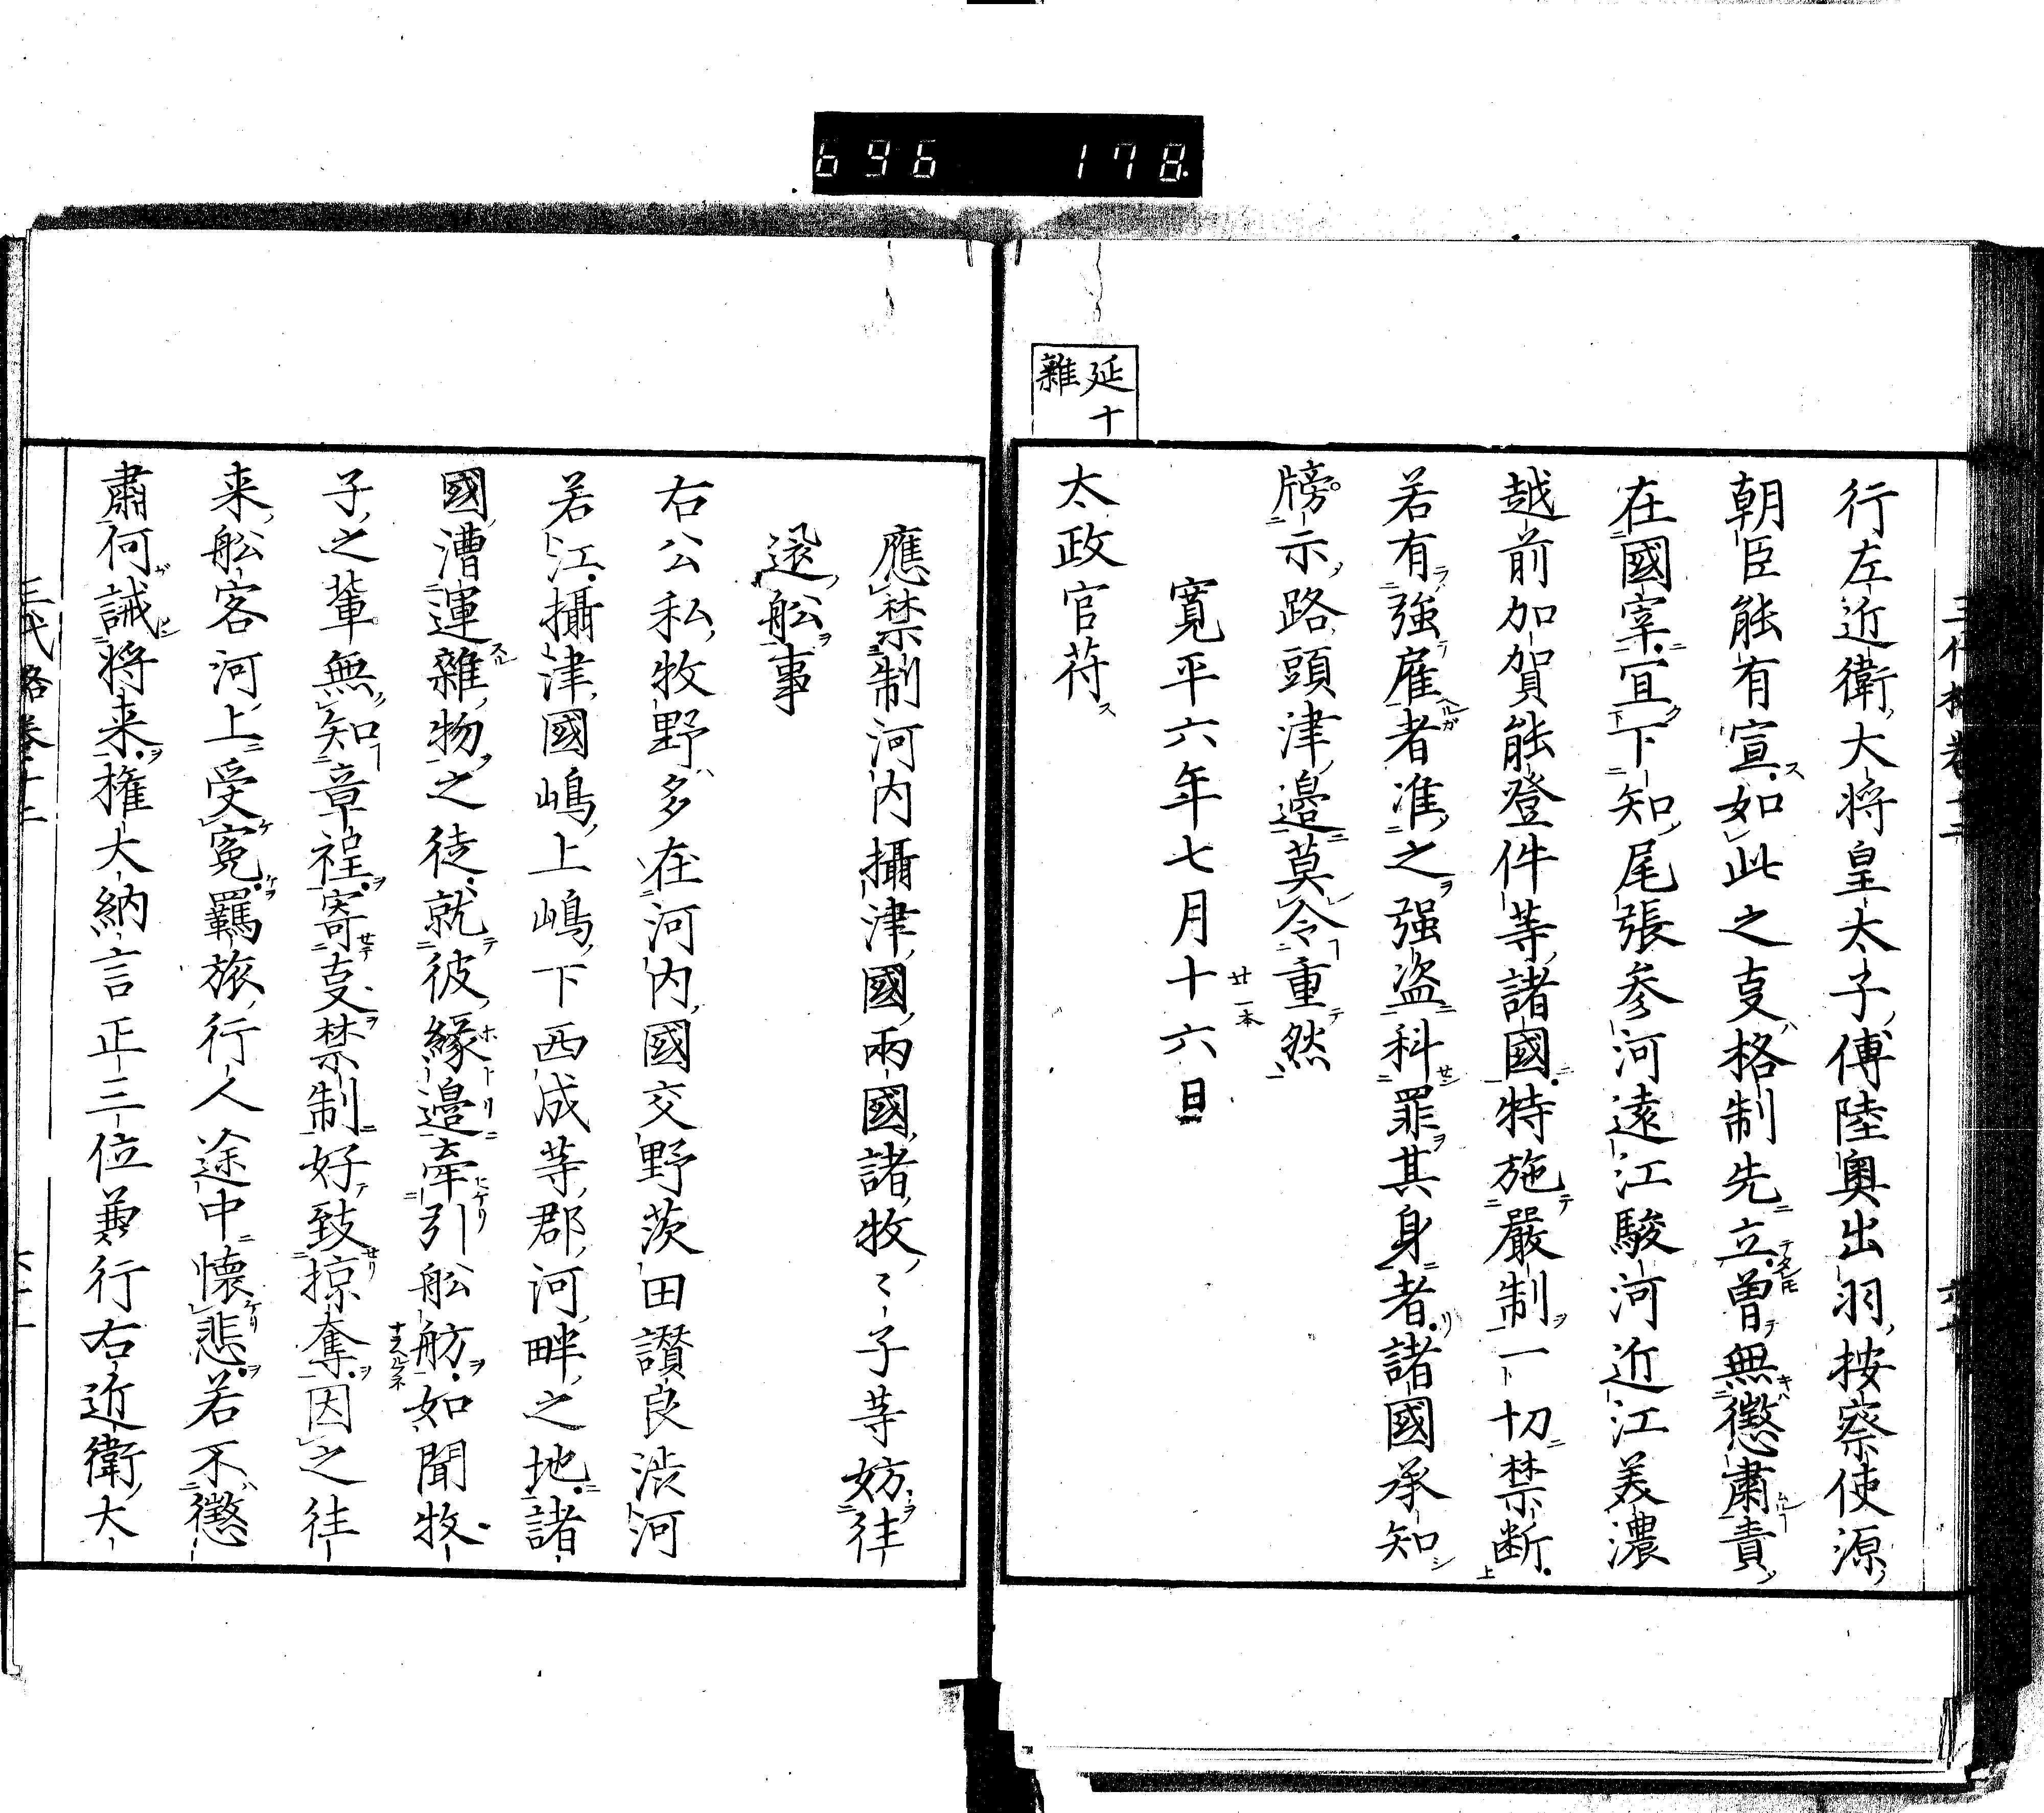 696 178
行左近衛大将皇太子傅陸奧出羽按察使源
朝臣能有宣如此之㕝格制先立曽無懲肅責
在國宰宜下知尾張参河遠江駿河近江美濃
越前加賀能登件等諸國特施嚴制一切禁断
若有強雇者准之强盗科罪其身者諸國承知
牓示路頭津邊莫令重然
寛平六年七月十六日
廿一本
延十
雜
太政官符
應禁制河内攝津國兩國諸牧〻子等妨徃
還舩事
右公私牧野多在河内國交野茨田讃良渋河
若江攝津國嶋上嶋下西成等郡河畔之地諸
國漕運雜物之徒就彼緣邊牽引舩舫如聞牧
子之輩無知章程寄㕝禁制好致掠奪因之徃
来舩客河上受寃羈旅行人途中懐悲若不懲
肅何誡将来権大納言正三位兼行右近衛大